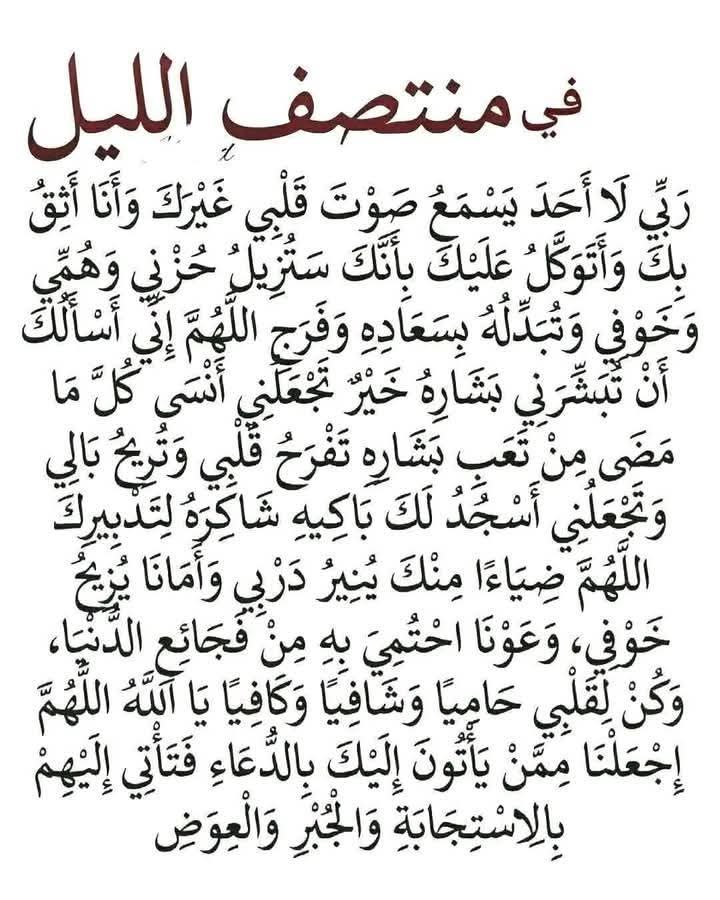 في منتصف الليل
رَبِّي لَا أَحَدَ يَسْمَعُ صَوْتَ قَلْبِي غَيْرَكَ وَأَنَا أَثِقُ
بِكَ وَأَتَوَكَّلُ عَلَيْكَ بِأَنَّكَ سَتُزِيلُ حُزْنِي وَهُمِّي
وَخَوْفِي وَتُبَدِّلُهُ بِسَعَادِهِ وَفَرَجِ اللَّهُمَّ إِنِّي أَسْأَلُكَ
أَنْ تُبَشِّرَنِي بَشَارِهُ خَيْرٌ تَجْعَلَنِي أَنْسَى كُلَّ مَا
مَضَى مِنْ تَعَبِ بَشَارِهِ تَفْرَحُ قَلْبِي وَتُرِيحُ بَالِي
وَتَجْعَلُنِي أَسْجُدُ لَكَ بَاكِيهِ شَاكِرَهُ لِتَدْبِيرِكَ
اللَّهُمَّ ضِيَاءًا مِنْكَ يُنِيرُ دَرْبِي وَأَمَانَا يُزِيحُ
خَوْفِي، وَعَوْنَا احْتُمِيَ بِهِ مِنْ فَجَائِعِ الدُّنْيَا،
وَكُنْ لِقَلْبِي حَامِيًا وَشَافِيًا وَكَافِيًا يَا اَللَّهُ اللَّهُمَّ
إِجْعَلْنَا مِمَّنْ يَأْتُونَ إِلَيْكَ بِالدُّعَاءِ فَتَأْتِي إِلَيْهِمْ
بِالِاسْتِجَابَةِ وَالْجُبْرِ وَالْعِوَضِ